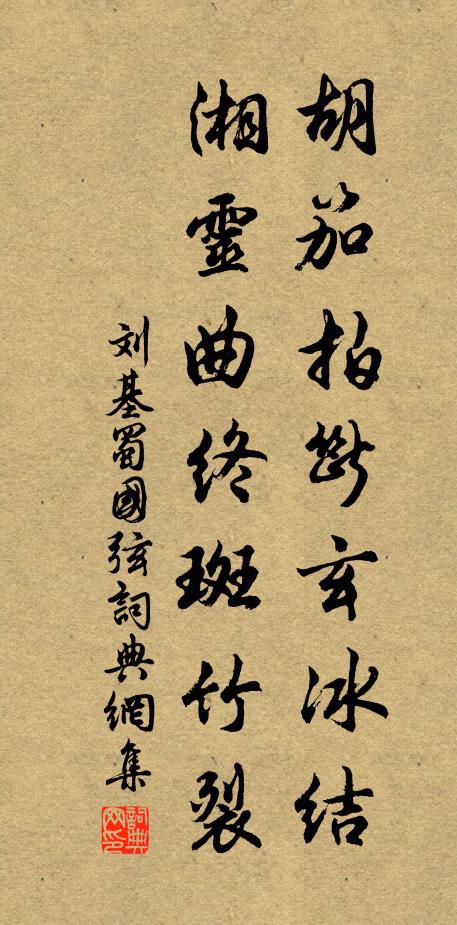 胡笳拍断玄冰结
湘靈曲终斑竹裂
刘基蜀國弦詞典網集
詞典网印